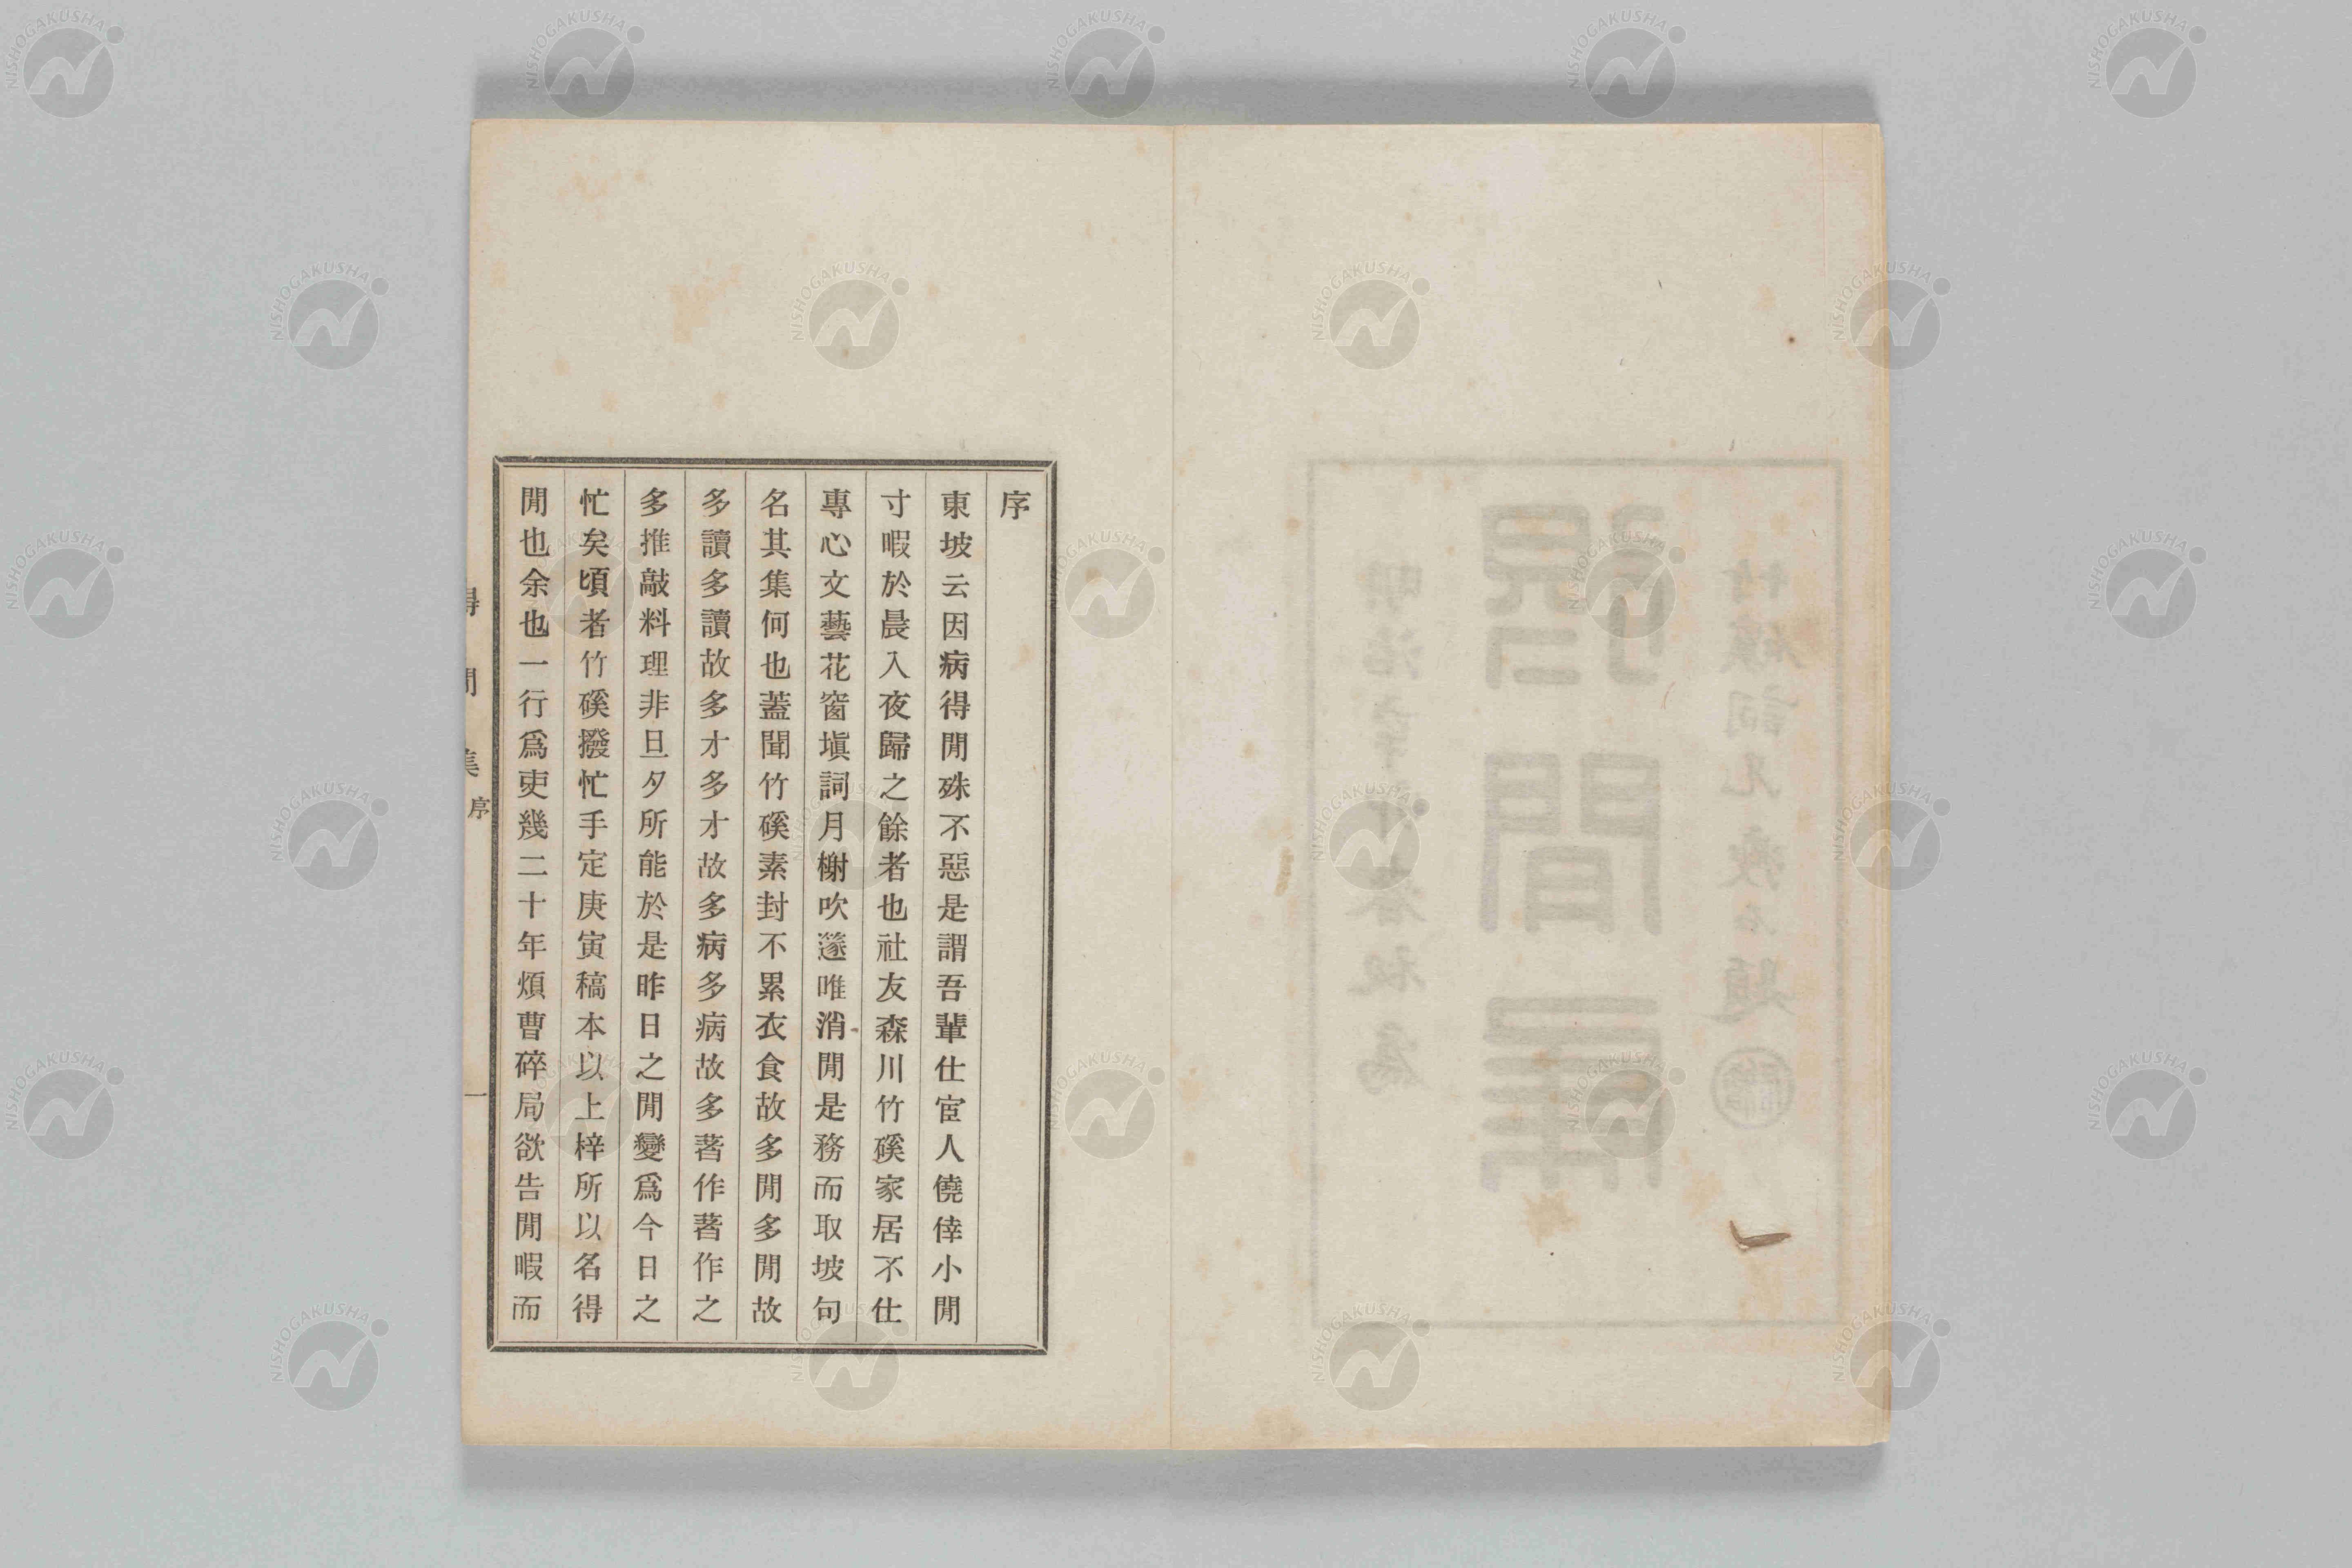 序
東坡云因病得閒殊不惡是謂吾輩仕宦人僥倖小閒
寸暇於晨入夜歸之餘者也社友森川竹磎家居不仕
專心文藝花窗塡詞月榭吹篴唯消閒是務而取坡句
名其集何也蓋聞竹磎素封不累衣食故多閒多閒故
多讀多讀故多才多才故多病多病故多著作著作之
多推敲料理非旦夕所能於是昨日之閒變爲今日之
忙矣頃者竹磎撥忙手定庚寅稿本以上梓所以名得
閒也余也一行爲吏幾二十年煩曹碎局欲吿閒暇而
得閒集 序 一
NISHOGAKUSHA